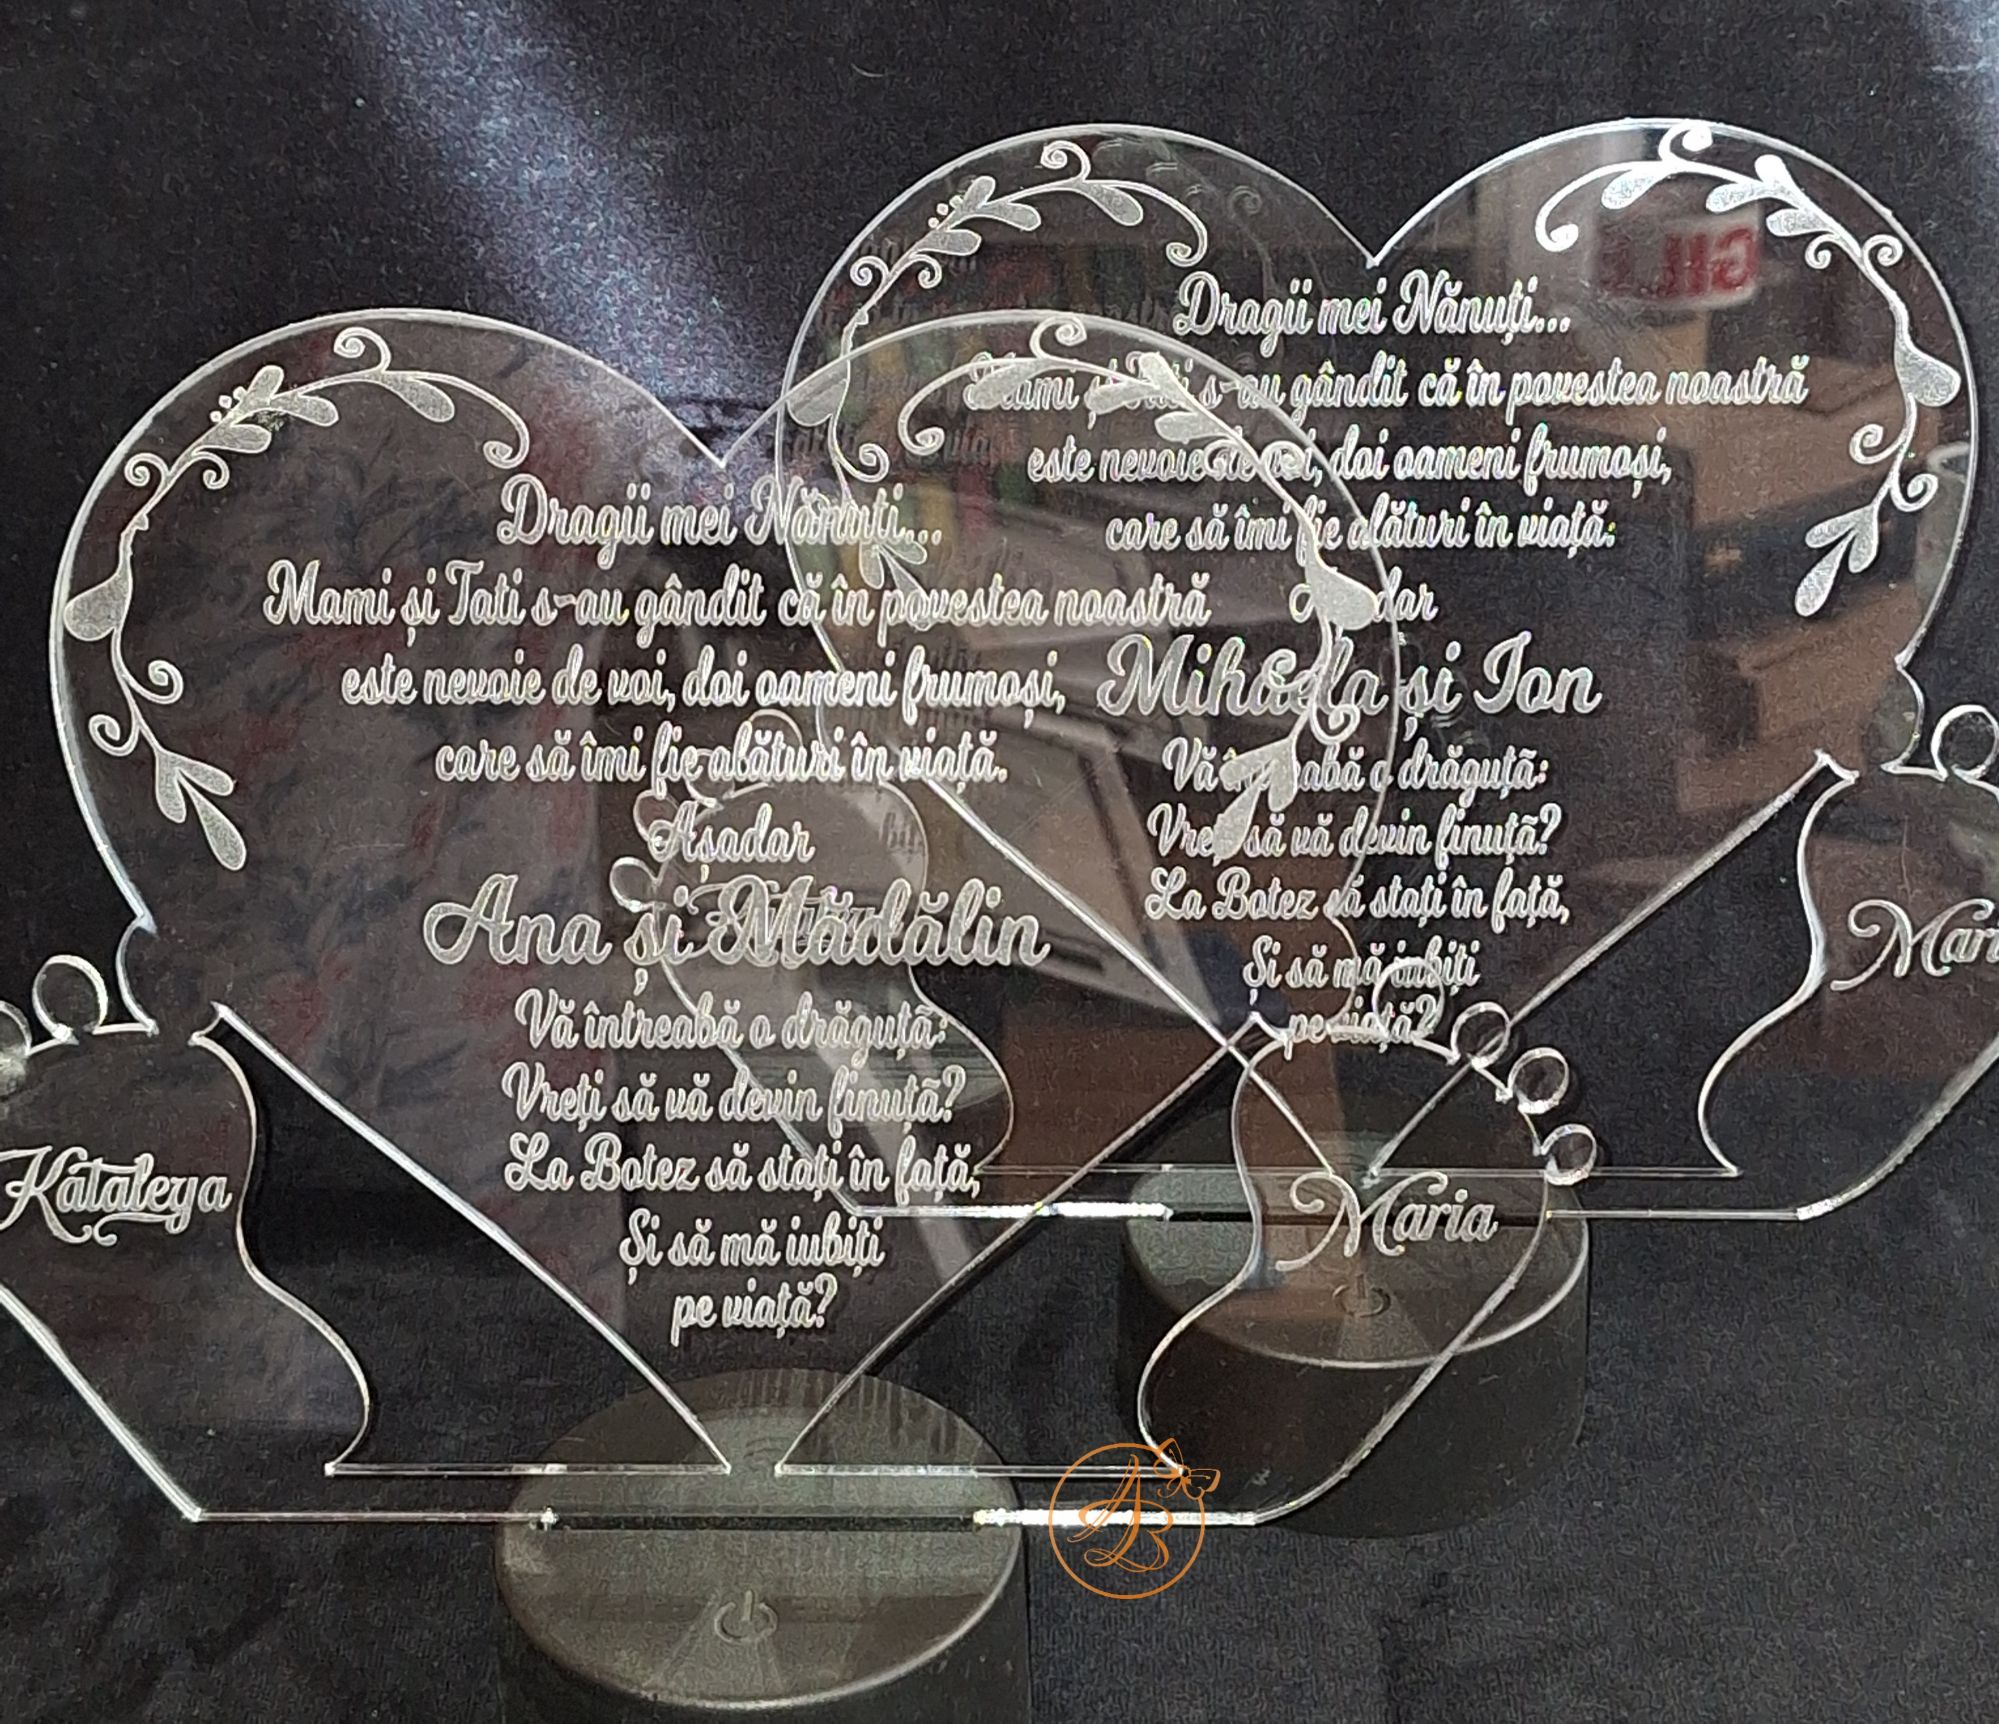 Dragii mei Nănuți...
Mami și Tati s-au gândit că în povestea noastră
este nevoie de voi, doi oameni frumoși,
care să îmi fie alături în viață.
Așadar
Ana și Mădălin
Vă întreabă o drăguță:
Vreți să vă devin finuță?
La Botez să stați în față,
Și să mă iubiți
pe viață?
Kataleya
Maria
Dragii mei Nănuți...
Mami și Tati s-au gândit că în povestea noastră
este nevoie de voi, doi oameni frumoși,
care să îmi fie alături în viață.
Așadar
Mihaela și Ion
Vă întreabă o drăguță:
Vreți să vă devin finuță?
La Botez să stați în față,
Și să mă iubiți
pe viață?